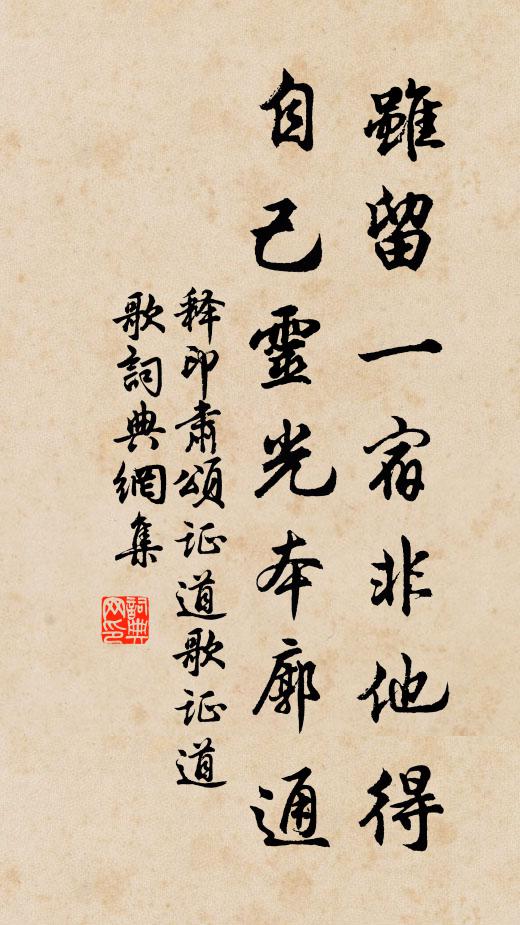 雖留一宿非他得
自己靈光本廓通
释印肅頌证道歌证道
歌詞典網集
詞典
网印